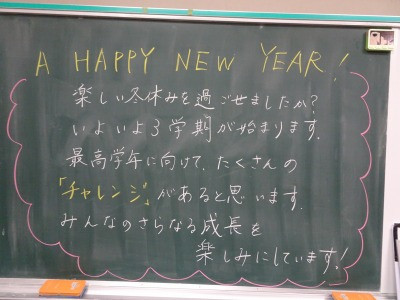 A HAPPY NEW YEAR!
楽しい冬休みを過ごせましたか?
いよいよ3学期が始まります。
最高学年に向けて、たくさんの
「チャレンジ」があると思います。
みんなのさらなる成長を
楽しみにしています!